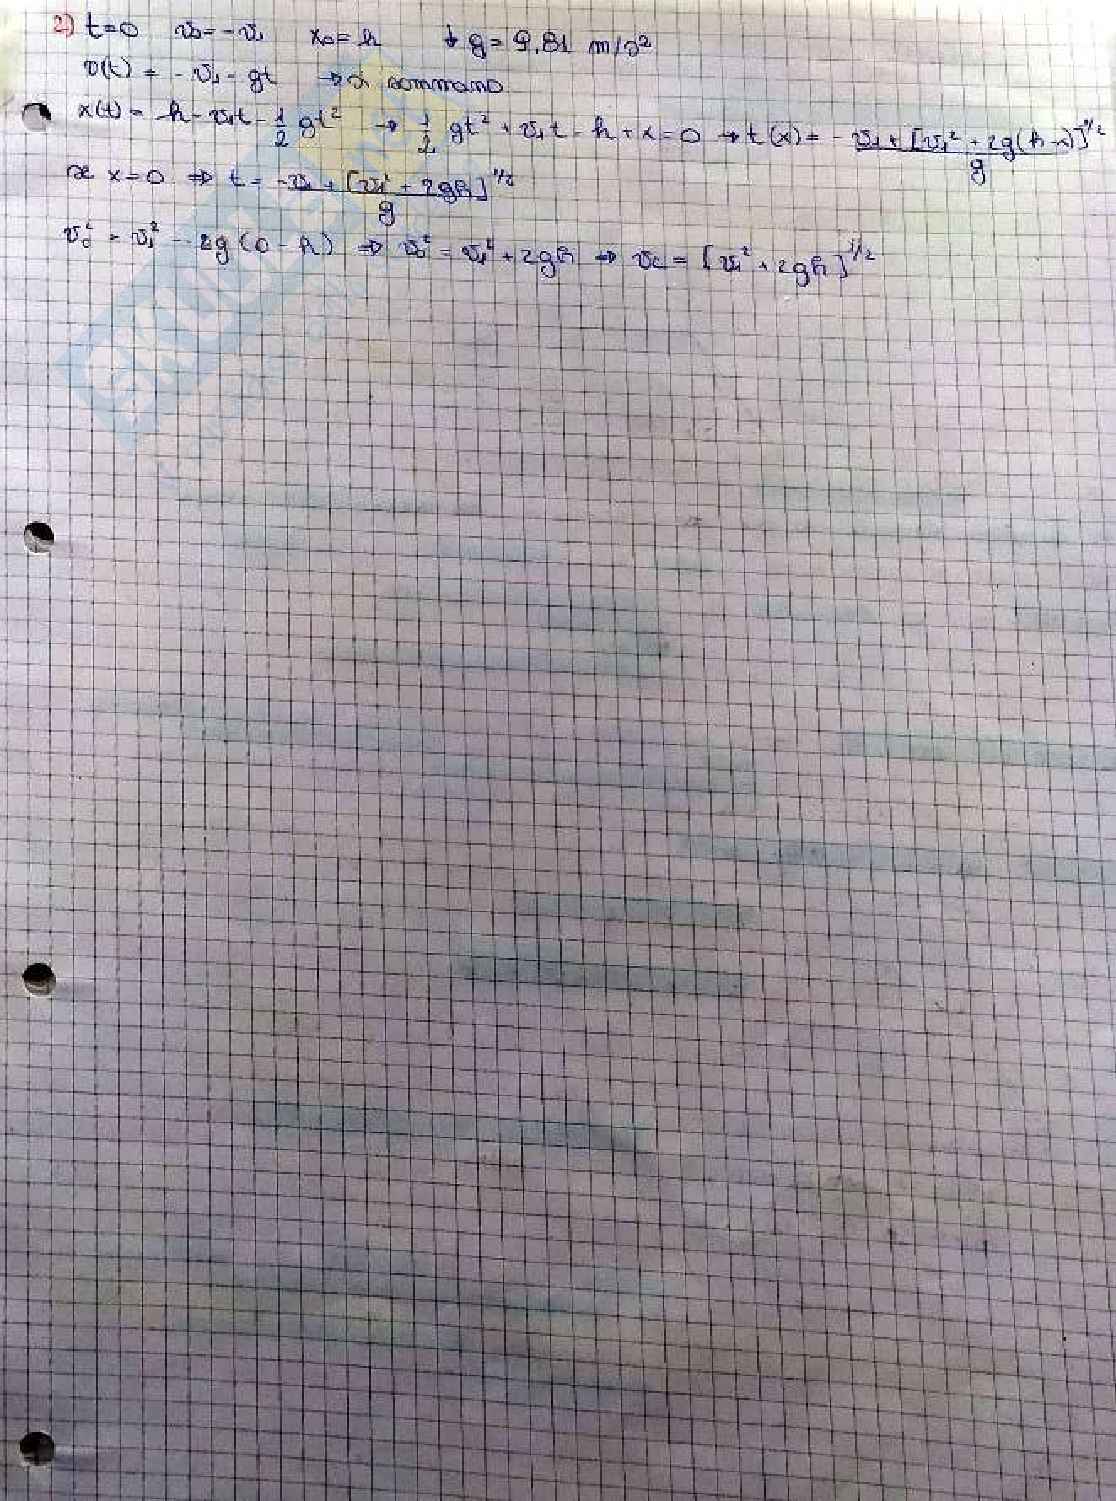 2) t=0 v₀=-v₁ x₀=h ↓ g=9.81 m/s²
v(t) = -v₁-gt → si sommano
x(t) = h-v₁t-1/2 gt² → 1/2 gt²+v₁t-h+x=0 → t(x) = -v₁+[v₁²+2g(h-x)]^1/2 / g
se x=0 ⇒ t = -v₁+[v₁²+2gh]^1/2 / g
v_c² = v₁² - 2g(0-h) ⇒ v_c² = v₁²+2gh ⇒ v_c = [v₁²+2gh]^1/2